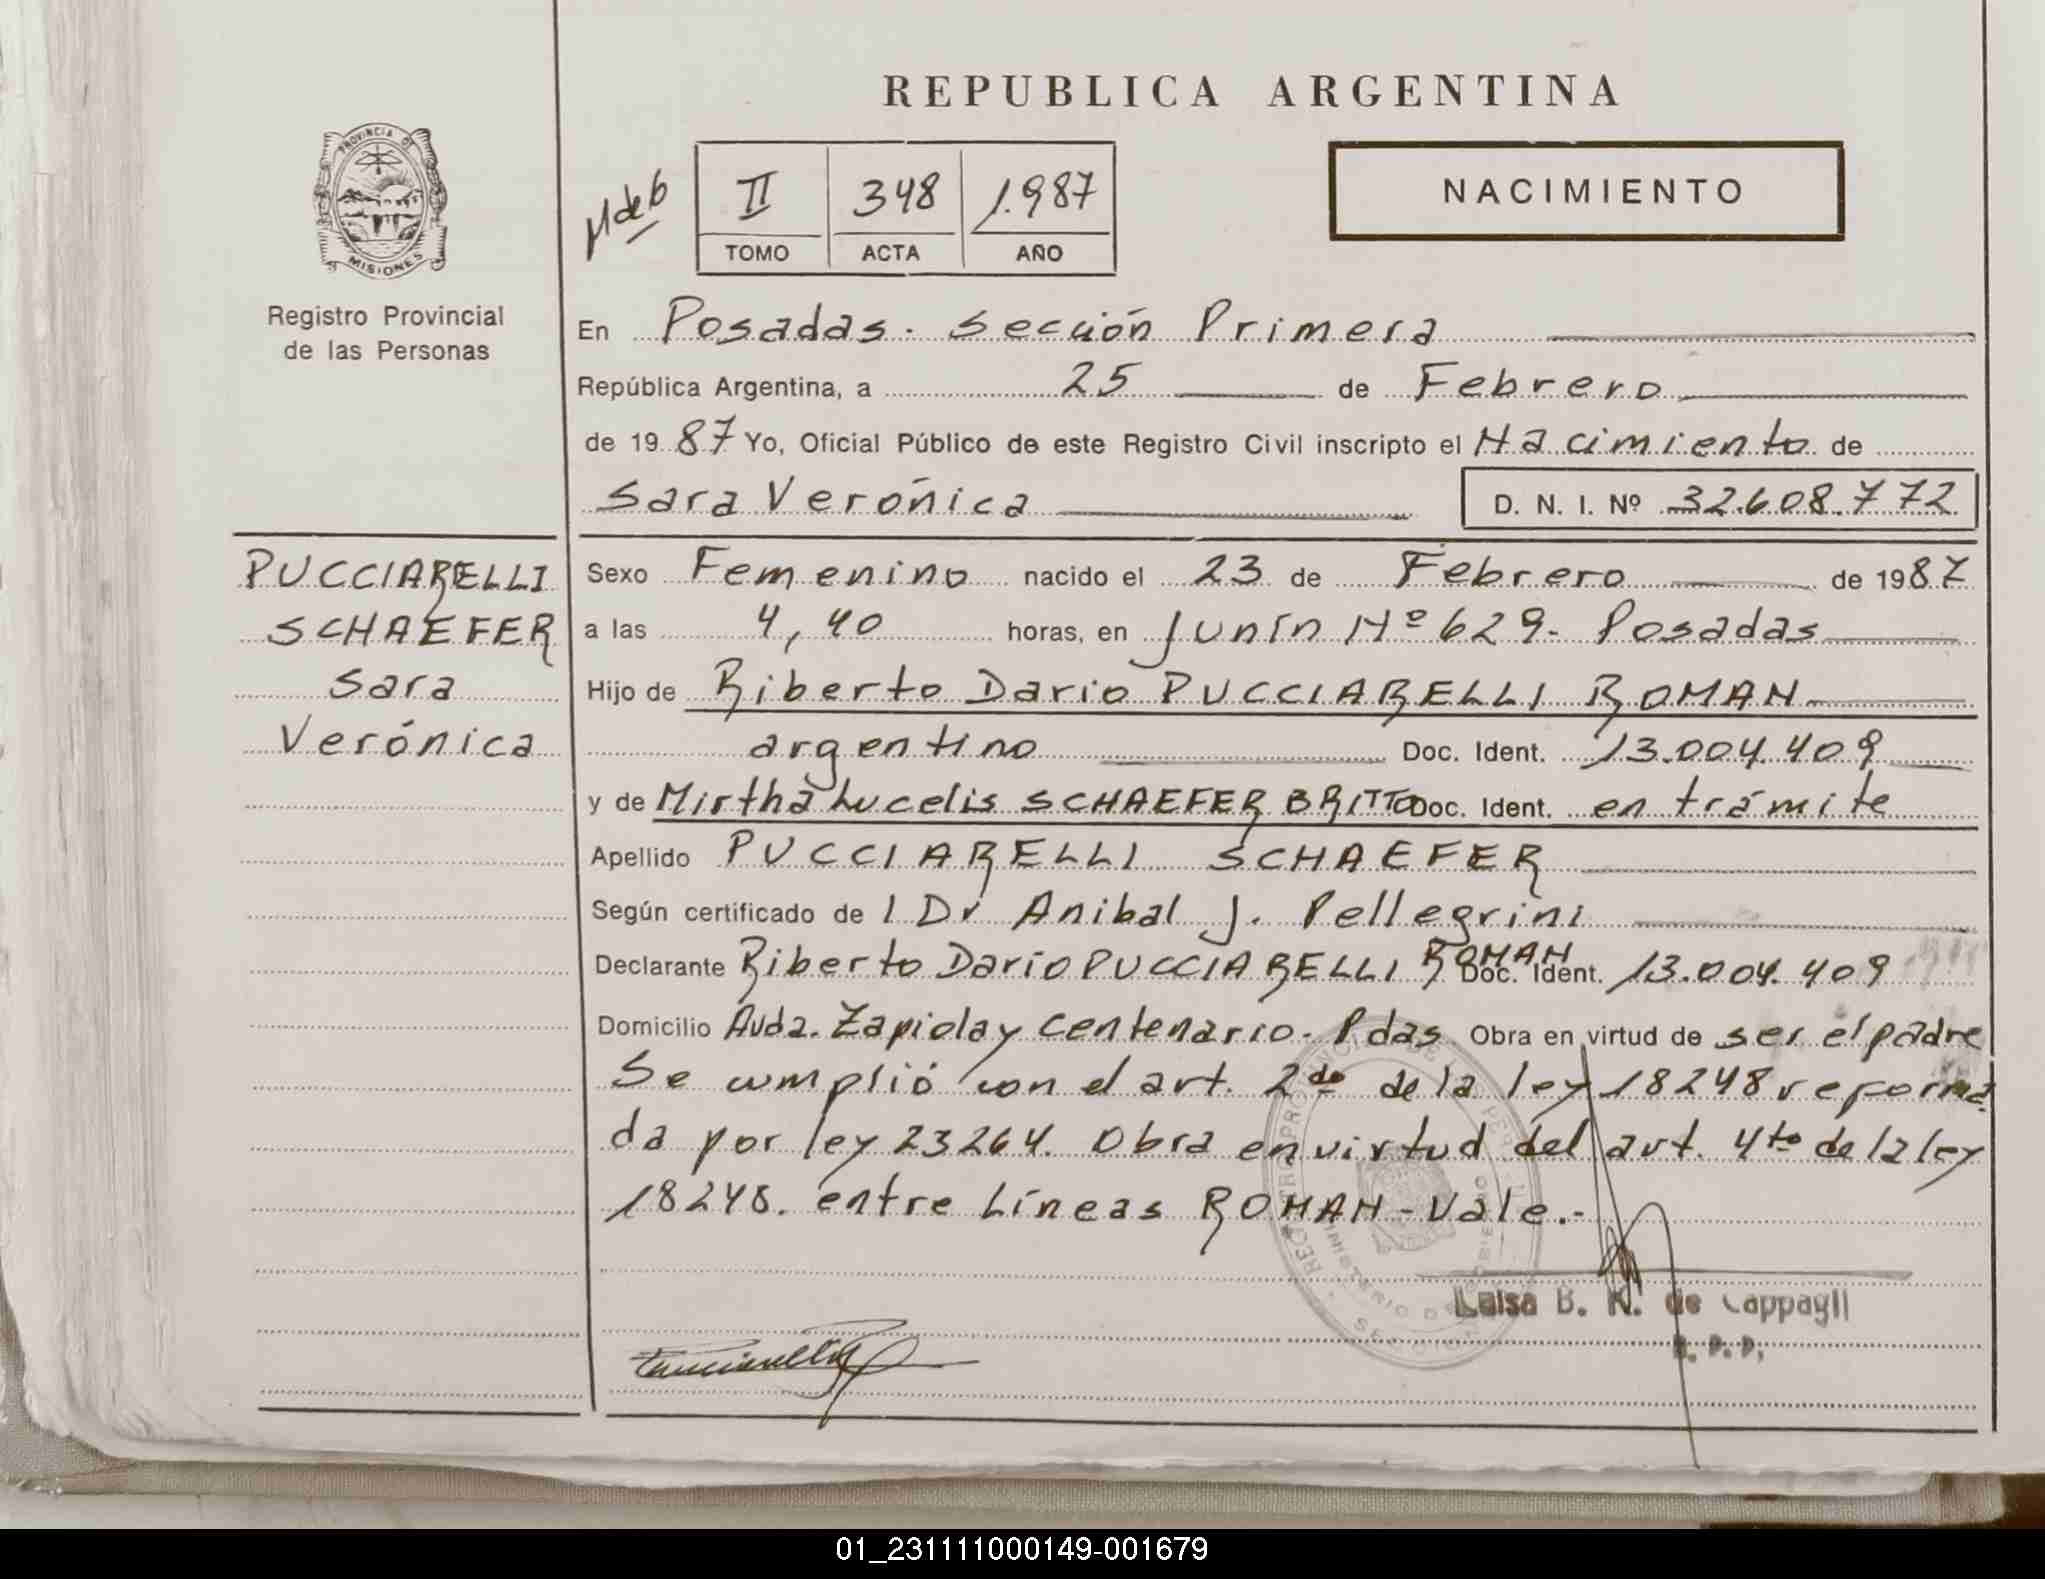 REPUBLICA ARGENTINA
PROVINCIA DE MISIONES
Registro Provincial
de las Personas
II 348 1.987
TOMO ACTA AÑO
NACIMIENTO
En Posadas. Sección Primera
República Argentina, a 25 de Febrero
de 19 87 Yo, Oficial Público de este Registro Civil inscripto el Nacimiento de
Sara Verónica D. N. I. Nº 32.608.772
PUCCIARELLI
SCHAEFER
Sara
Verónica
Sexo Femenino nacido el 23 de Febrero de 1987
a las 4,40 horas, en Junín Nº 629- Posadas
Hijo de Riberto Dario PUCCIARELLI ROMAN
argentino Doc. Ident. 13.004.409
y de Mirtha Lucelis SCHAEFER BRITTO Doc. Ident. en trámite
Apellido PUCCIARELLI SCHAEFER
Según certificado de l Dr Anibal J. Pellegrini
Declarante Riberto Darío PUCCIARELLI ROMAN Doc. Ident. 13.004.409
Domicilio Avda. Zapiola y Centenario- Pdas Obra en virtud de ser el padre
Se cumplió con el art. 2do de la ley 18248 reforma
da por ley 23264. Obra en virtud del art. 4to de la ley
18248. entre Líneas ROMAN - Vale.-
Luisa B. K. de Cappagli
01_231111000149-001679